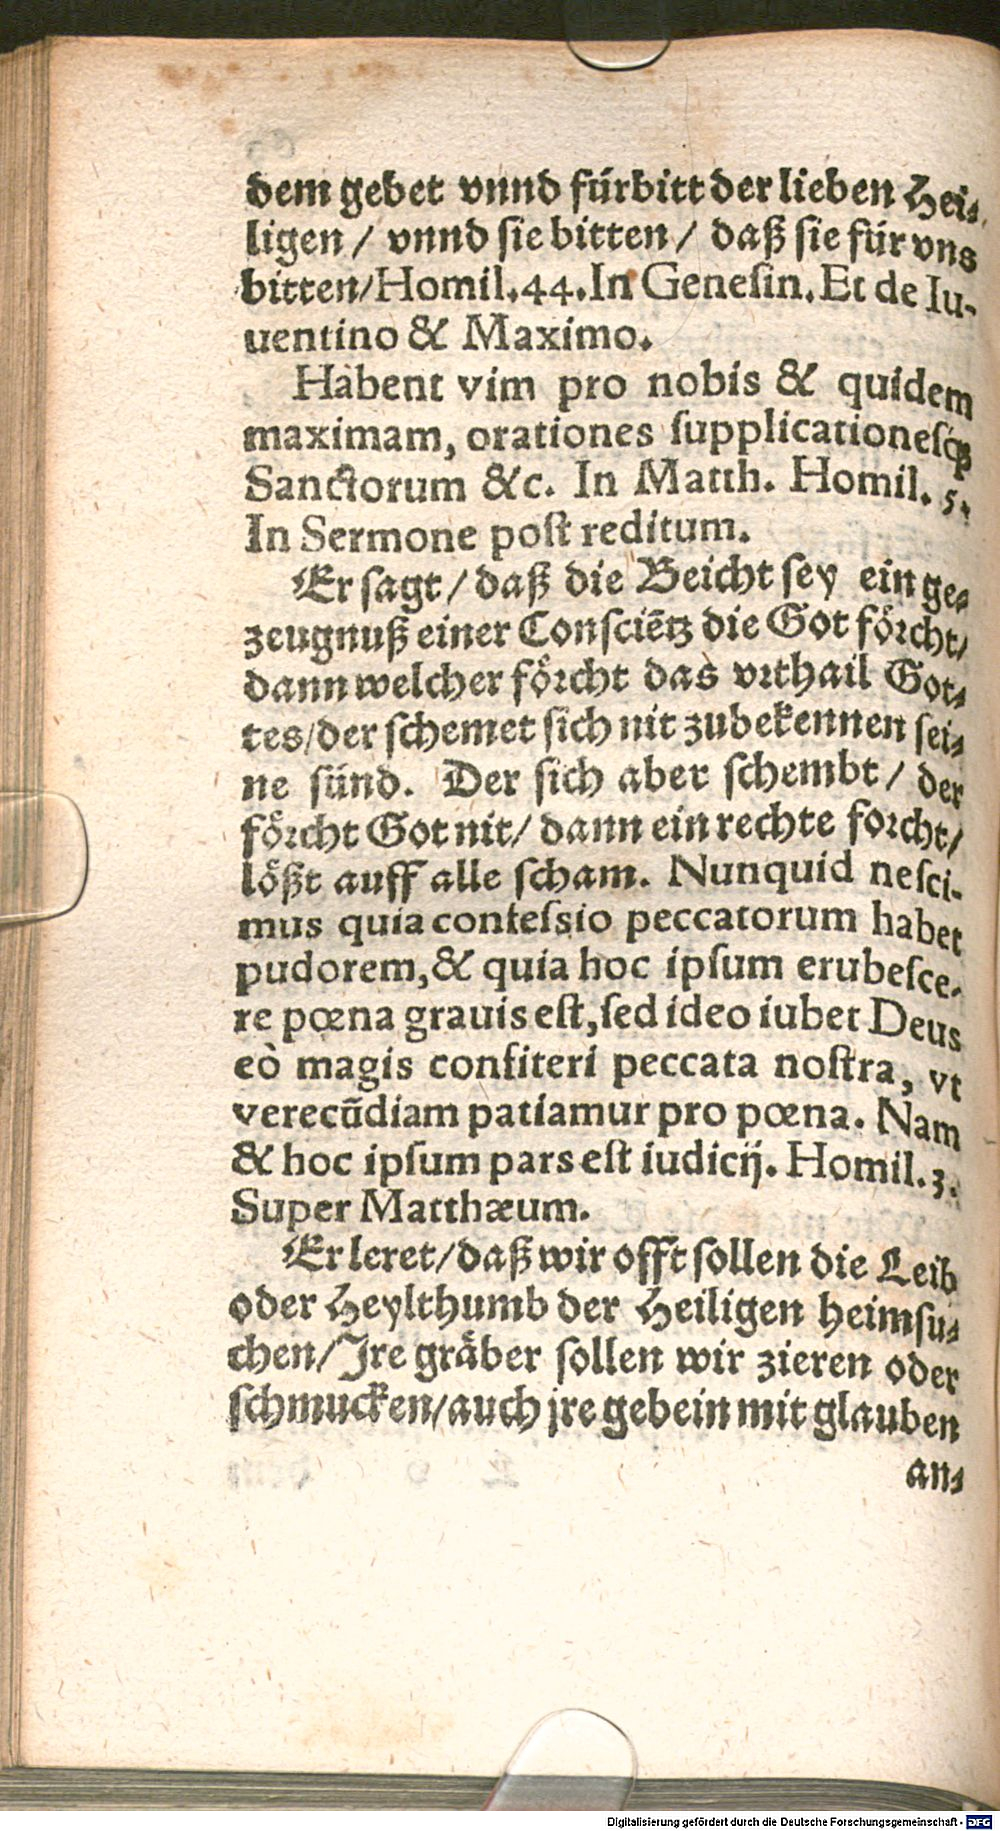 dem gebet vnnd fürbitt der lieben Hei⸗
ligen / vnnd sie bitten / daß sie für vns
bitten/Homil.44.In Genesin.Et de Iu-
uentino & Maximo.
Habent vim pro nobis & quidem
maximam, orationes supplicationesq́;
Sanctorum &c. In Matth. Homil. 5.
In Sermone post reditum.
Er sagt / daß die Beicht sey ein ge⸗
zeugnuß einer Consciētz die Got förcht/
dann welcher förcht das vrthail Got⸗
tes/der schemet sich nit zubekennen sei⸗
ne sünd. Der sich aber schembt / der
förcht Got nit/ dann ein rechte forcht/
lößt auff alle scham. Nunquid nesci-
mus quia confessio peccatorum habet
pudorem,& quia hoc ipsum erubesce-
re pœna grauis est,sed ideo iubet Deus
eò magis confiteri peccata nostra, vt
verecūdiam patiamur pro pœna. Nam
& hoc ipsum pars est iudicij. Homil.3.
Super Matthæum.
Er leret/daß wir offt sollen die Leib
oder Heylthumb der Heiligen heimsu⸗
chen/Jre gräber sollen wir zieren oder
schmucken/auch jre gebein mit glauben
an⸗
Digitalisierung gefördert durch die Deutsche Forschungsgemeinschaft - DFG